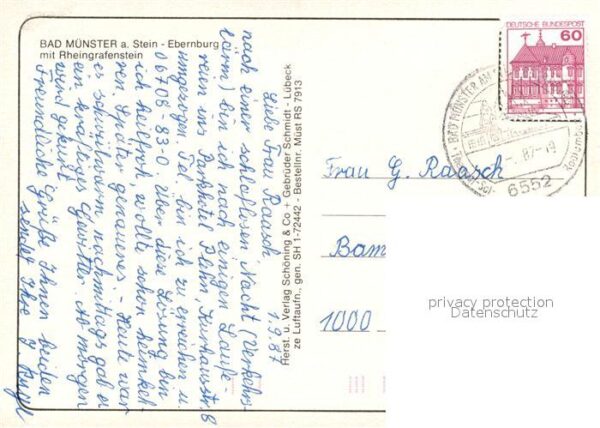 BAD MÜNSTER a. Stein - Ebernburg
mit Rheingrafenstein
1.9.87
Liebe Frau Raasch,
nach einer schlaflosen Nacht (Verkehrs-
lärm) bin ich nach einigen Laufe-
reien ins Parkhotel Plehn, Kurhausstr. 8
umgezogen. Tel. bin ich zu erreichen u.
06708-830. Über diese Lösung bin
ich heilfroh, wollte schon heimkeh-
ren. Später genaueres. - Heute war
es schwülwarm nachmittags gab es
ein kräftiges Gewitter. Ab morgen
wird gekurt.
Freundliche Grüße Ihnen beiden
sendet Ihre
Herst. u. Verlag Schöning & Co + Gebrüder Schmidt - Lübeck
ze Luftaufn., gen. SH 1-72442 - Bestellnr. Müst RS 7913
DEUTSCHE BUNDESPOST
60
BAD MÜNSTER AM
87-19
6552
Frau G. Raasch
Bam
1000
privacy protection
Datenschutz